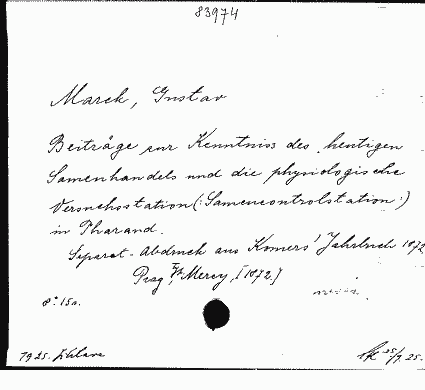 83974
Marek, Gustav
Beiträge zur Kenntniss des heutigen
Samenhandels und die physiologische
Versuchsstation (: Samencontrolstation :)
in Tharand.
Separat-Abdruck aus Komers' Jahrbuch 1872
Prag, Mercy, [1872.]
8° 15a.
1925.
25/9.25.